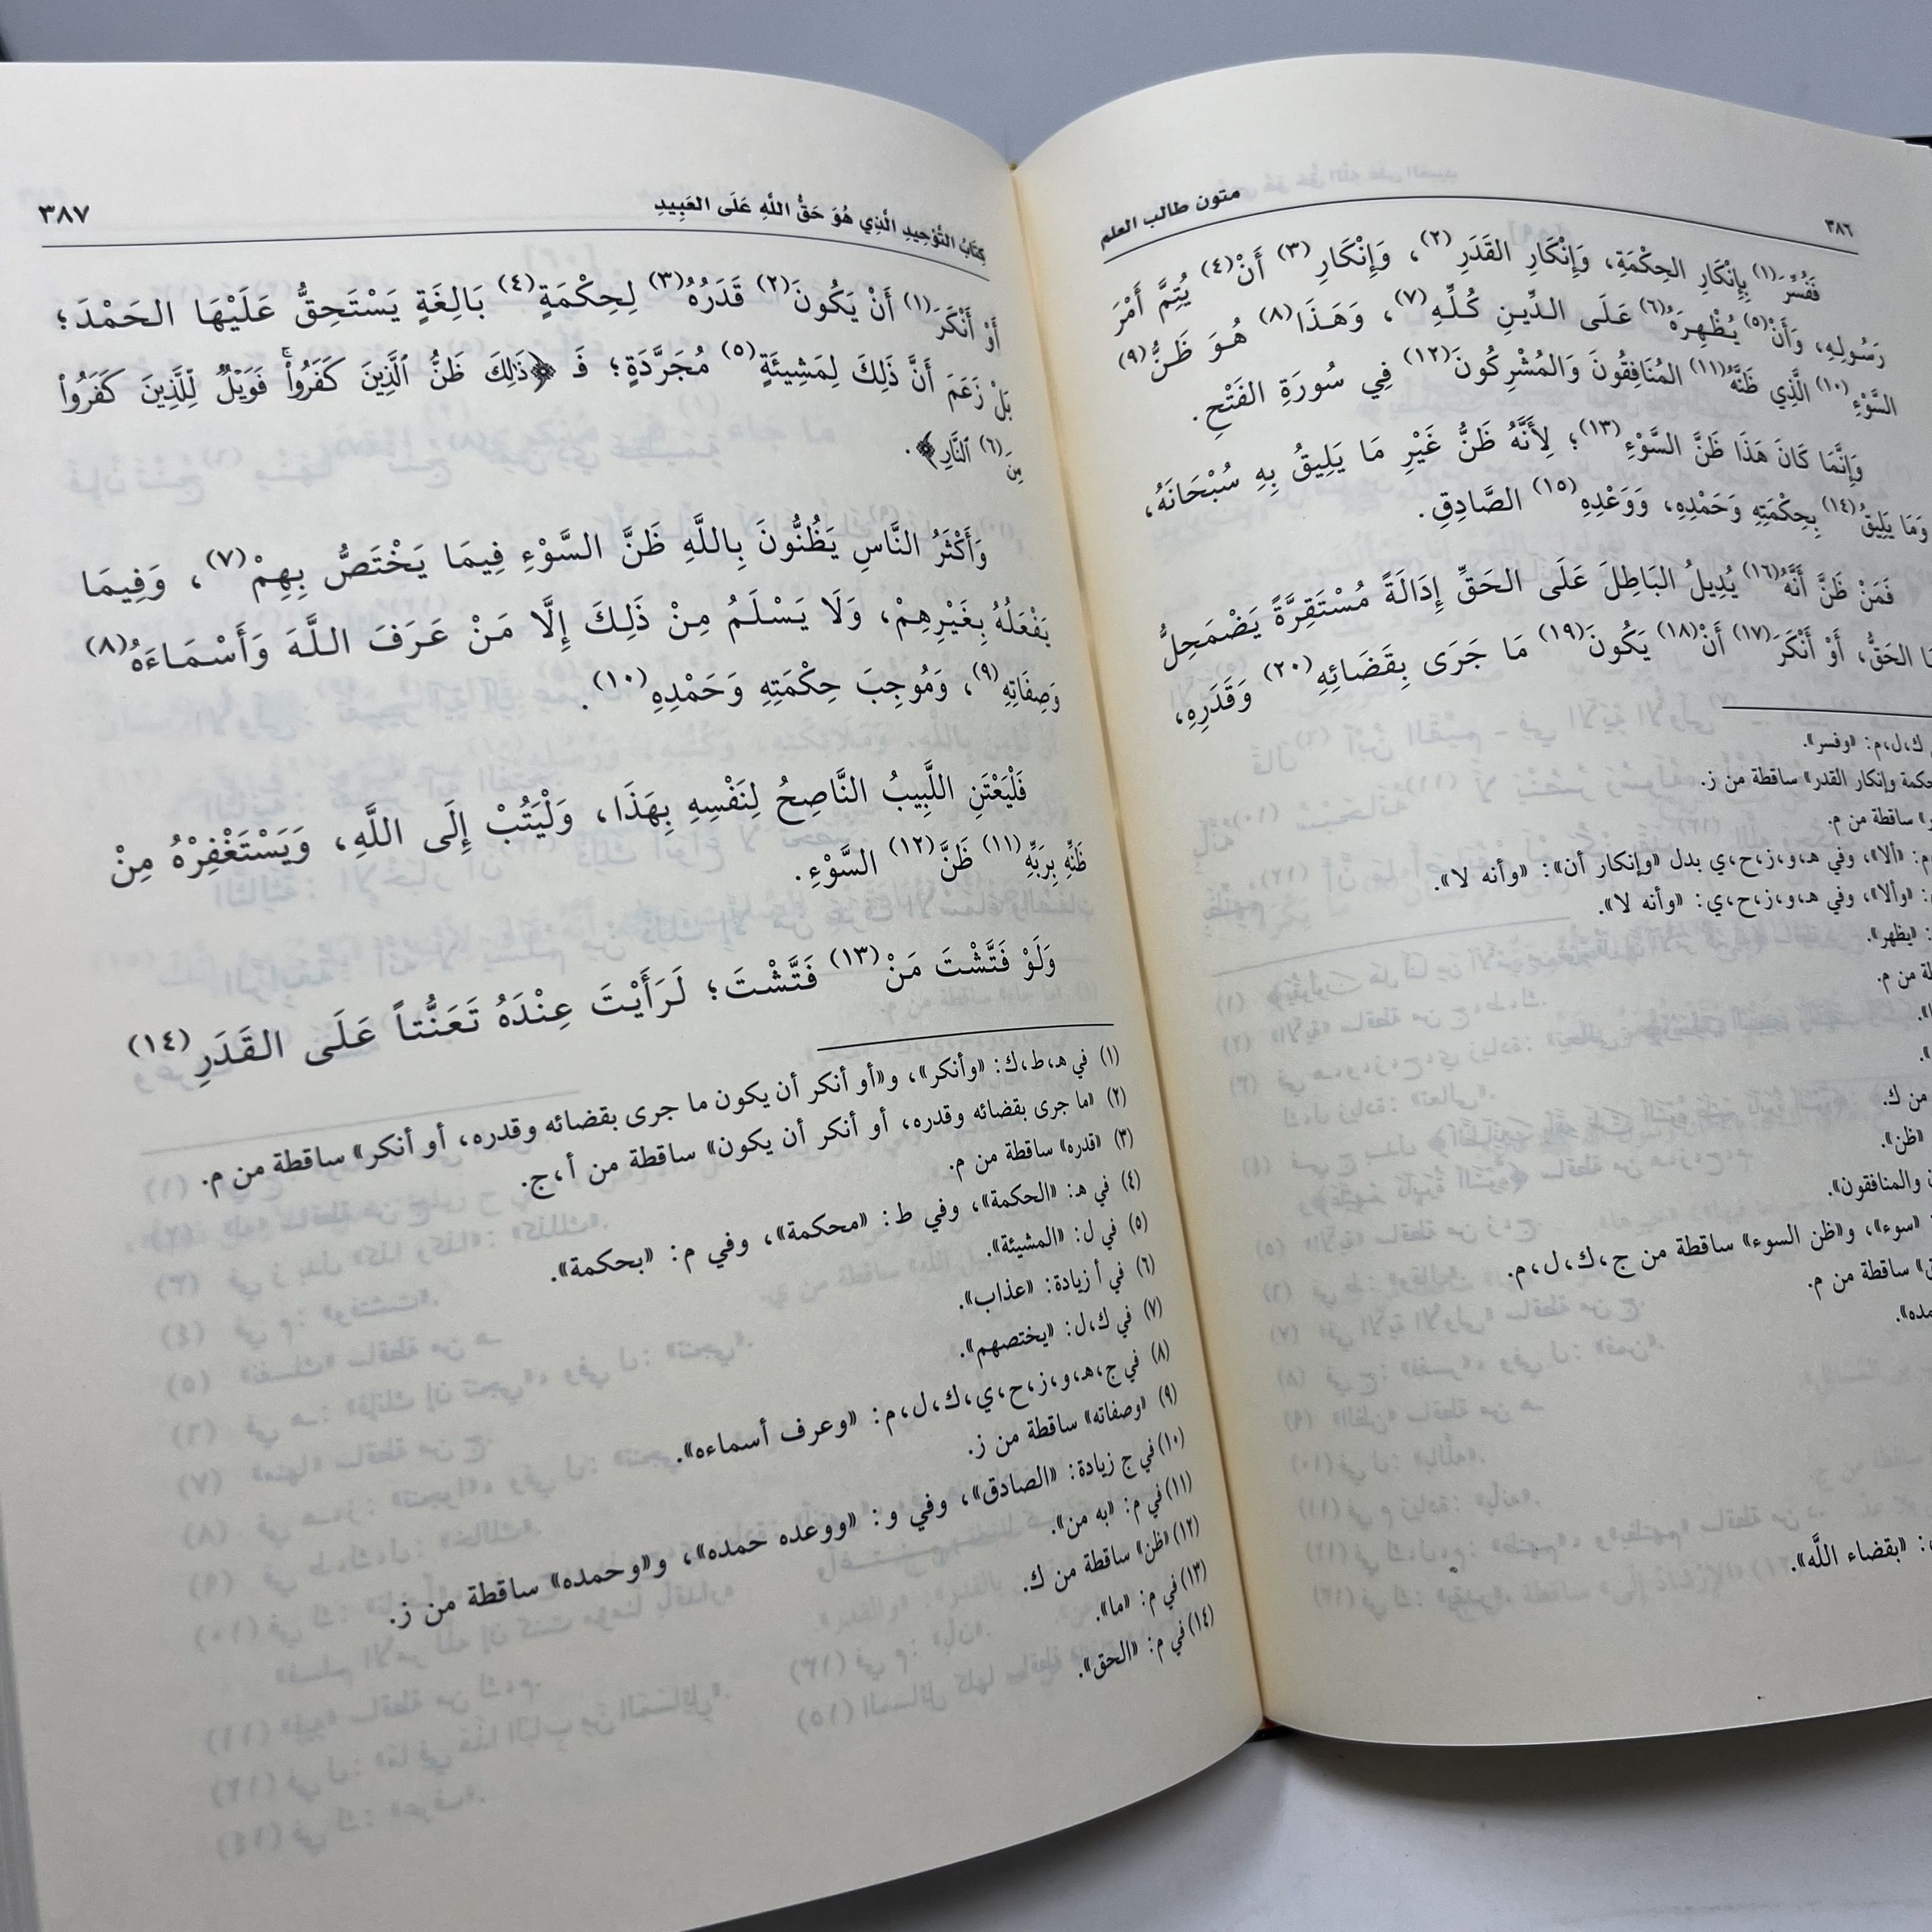 ٣٨٦
متون طالب العلم
فَفُسِّرَ(١) بِإِنْكَارِ الحِكْمَةِ، وَإِنْكَارِ القَدَرِ(٢)، وَإِنْكَارِ(٣) أَنْ(٤) يُتِمَّ أَمْرَ
رَسُولِهِ، وَأَنْ(٥) يُظْهِرَهُ(٦) عَلَى الدِّينِ كُلِّهِ(٧)، وَهَذَا(٨) هُوَ ظَنُّ(٩)
السَّوْءِ(١٠) الَّذِي ظَنَّهُ(١١) المُنَافِقُونَ وَالمُشْرِكُونَ(١٢) فِي سُورَةِ الفَتْحِ.
وَإِنَّمَا كَانَ هَذَا ظَنَّ السَّوْءِ(١٣)؛ لِأَنَّهُ ظَنُّ غَيْرِ مَا يَلِيقُ بِهِ سُبْحَانَهُ،
وَمَا يَلِيقُ(١٤) بِحِكْمَتِهِ وَحَمْدِهِ، وَوَعْدِهِ(١٥) الصَّادِقِ.
فَمَنْ ظَنَّ أَنَّهُ(١٦) يُدِيلُ البَاطِلَ عَلَى الحَقِّ إِدَالَةً مُسْتَقِرَّةً يَضْمَحِلُّ
الحَقُّ، أَوْ أَنْكَرَ(١٧) أَنْ(١٨) يَكُونَ(١٩) مَا جَرَى بِقَضَائِهِ(٢٠) وَقَدَرِهِ،
ك،ل،م: «وفسر».
وإنكار القدر» ساقطة من ز.
ساقطة من م.
م: «ألا»، وفي هـ،و،ز،ح،ي بدل «وإنكار أن»: «وأنه لا».
«وألا»، وفي هـ،و،ز،ح،ي: «وأنه لا».
«يظهر».
من م.
من ك.
«ظن».
والمنافقون».
«سوء»، و«ظن السوء» ساقطة من ج،ك،ل،م.
ساقطة من م.
«بقضاء اللَّه».
كِتَابُ التَّوْحِيدِ الَّذِي هُوَ حَقُّ اللَّهِ عَلَى العَبِيدِ
٣٨٧
أَوْ أَنْكَرَ(١) أَنْ يَكُونَ(٢) قَدَرُهُ(٣) لِحِكْمَةٍ(٤) بَالِغَةٍ يَسْتَحِقُّ عَلَيْهَا الحَمْدَ؛
بَلْ زَعَمَ أَنَّ ذَلِكَ لِمَشِيئَةٍ(٥) مُجَرَّدَةٍ؛ فَـ ﴿ذَٰلِكَ ظَنُّ ٱلَّذِينَ كَفَرُواْۚ فَوَيْلٌ لِّلَّذِينَ كَفَرُواْ
مِنَ(٦) ٱلنَّارِ﴾.
وَأَكْثَرُ النَّاسِ يَظُنُّونَ بِاللَّهِ ظَنَّ السَّوْءِ فِيمَا يَخْتَصُّ بِهِمْ(٧)، وَفِيمَا
يَفْعَلُهُ بِغَيْرِهِمْ، وَلَا يَسْلَمُ مِنْ ذَلِكَ إِلَّا مَنْ عَرَفَ اللَّهَ وَأَسْمَاءَهُ(٨)
وَصِفَاتِهِ(٩)، وَمُوجِبَ حِكْمَتِهِ وَحَمْدِهِ(١٠).
فَلْيَعْتَنِ اللَّبِيبُ النَّاصِحُ لِنَفْسِهِ بِهَذَا، وَلْيَتُبْ إِلَى اللَّهِ، وَيَسْتَغْفِرْهُ مِنْ
ظَنِّهِ بِرَبِّهِ(١١) ظَنَّ(١٢) السَّوْءِ.
وَلَوْ فَتَّشْتَ مَنْ(١٣) فَتَّشْتَ؛ لَرَأَيْتَ عِنْدَهُ تَعَنُّتاً عَلَى القَدَرِ(١٤)
(١) في هـ،ط،ك: «وأنكر»، و«أو أنكر أن يكون ما جرى بقضائه وقدره، أو أنكر» ساقطة من م.
(٢) «ما جرى بقضائه وقدره، أو أنكر أن يكون» ساقطة من أ،ج.
(٣) «قدره» ساقطة من م.
(٤) في هـ: «الحكمة»، وفي ط: «محكمة»، وفي م: «بحكمة».
(٥) في ل: «المشيئة».
(٦) في أ زيادة: «عذاب».
(٧) في ك،ل: «يختصهم».
(٨) في ج،هـ،و،ز،ح،ي،ك،ل،م: «وعرف أسماءه».
(٩) «وصفاته» ساقطة من ز.
(١٠) في ج زيادة: «الصادق»، وفي و: «ووعده حمده»، و«وحمده» ساقطة من ز.
(١١) في م: «به من».
(١٢) «ظن» ساقطة من ك.
(١٣) في م: «ما».
(١٤) في م: «الحق».